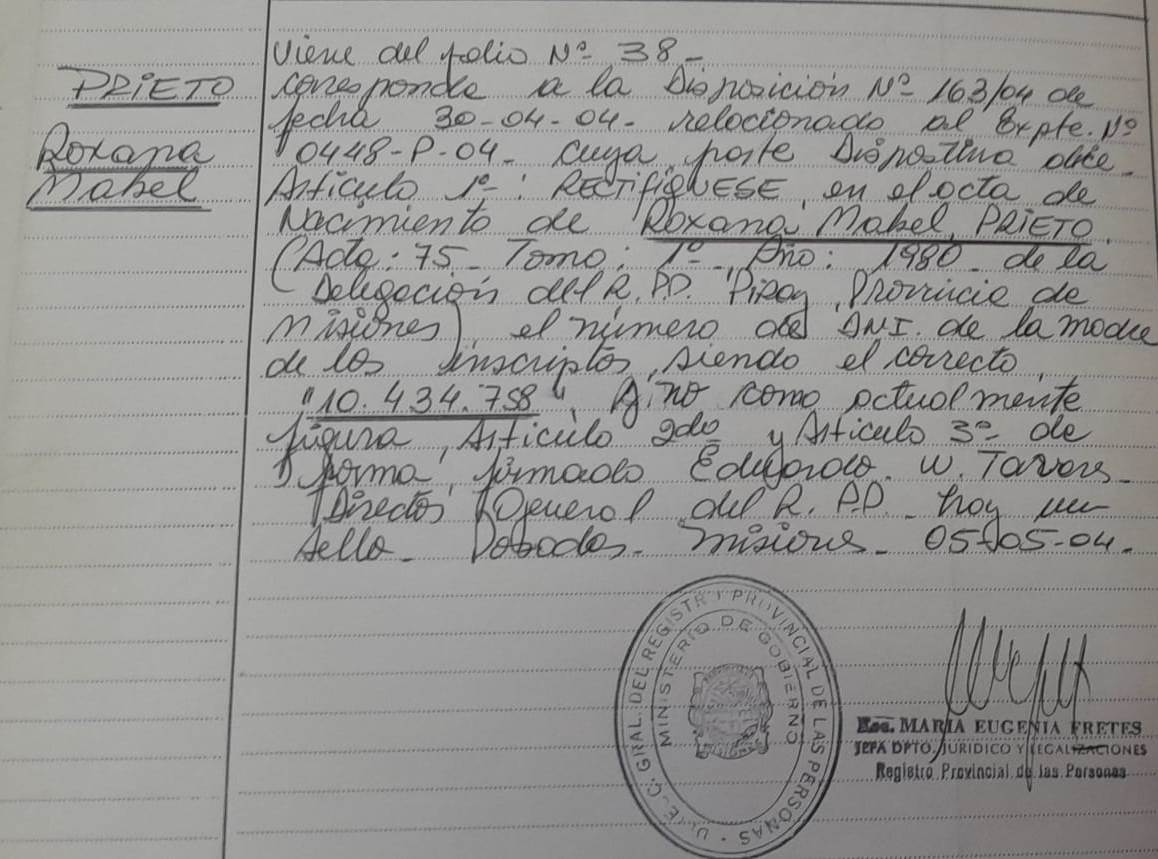 PRIETO
Roxana
Mabel
Viene del folio Nº 38-
corresponde a la Disposición Nº 163/04 de
fecha 30-04-04- relacionado al Expte. Nº
0448-P-04- cuya parte Dispositiva dice-
Artículo 1º-: RECTIFIQUESE, en el acta de
Nacimiento de Roxana Mabel, PRIETO.
(Acta: 75- Tomo: 1º- Año: 1980- de la
Delegación del R.P.P. Piray, Provincia de
Misiones), el número de DNI. de la madre
de los inscriptos, siendo el correcto,
"10.434.758", y no como actualmente
figura, Artículo 2do y Artículo 3º- de
forma, firmado Eduardo. W.
Director General del R. P.P. hay un
sello- Posadas- Misiones- 05-05-04.
DIREC. GRAL. DEL REGISTRO PROVINCIAL DE LAS PERSONAS -
MINISTERIO DE GOBIERNO
Esc. MARIA EUGENIA FRETES
JEFA DPTO. JURIDICO Y LEGALIZACIONES
Registro Provincial de las Personas